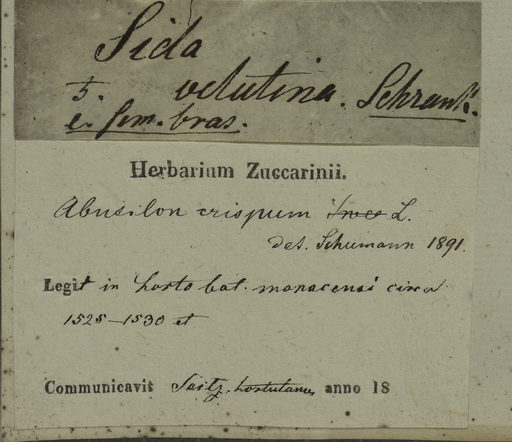 Sida
5. velutina. Schrank.
e. sem. bras.
Herbarium Zuccarinii.
Abusilon crispum L.
det. Schumann 1891.
Legit in horto bot. monacensi circa
1525-1530 et
Communicavit Seitz. hortulanus anno 18